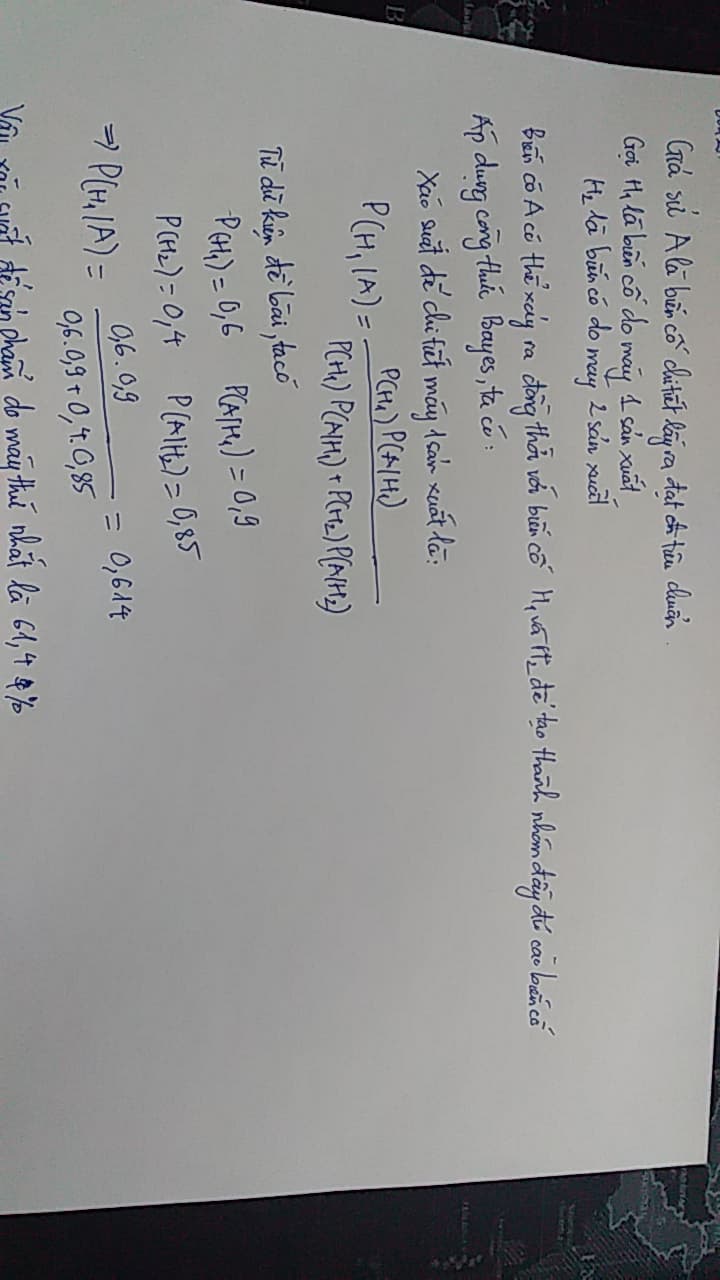 Giả sử A là biến cố chi tiết lấy ra đạt tiêu chuẩn.
Gọi H₁ là biến cố do máy 1 sản xuất
H₂ là biến cố do máy 2 sản xuất
Biến cố A có thể xảy ra đồng thời với biến cố H₁ và H₂ để tạo thành nhóm đầy đủ các biến cố
Áp dụng công thức Bayes, ta có:
Xác suất để chi tiết máy 1 sản xuất là:
P(H₁|A) = P(H₁) P(A|H₁) / P(H₁) P(A|H₁) + P(H₂) P(A|H₂)
Từ dữ kiện đề bài, ta có
P(H₁) = 0,6 P(A|H₁) = 0,9
P(H₂) = 0,4 P(A|H₂) = 0,85
⇒ P(H₁|A) = 0,6.0,9 / 0,6.0,9 + 0,4.0,85 = 0,614
Vậy xác suất để sản phẩm do máy thứ nhất là 61,4 %